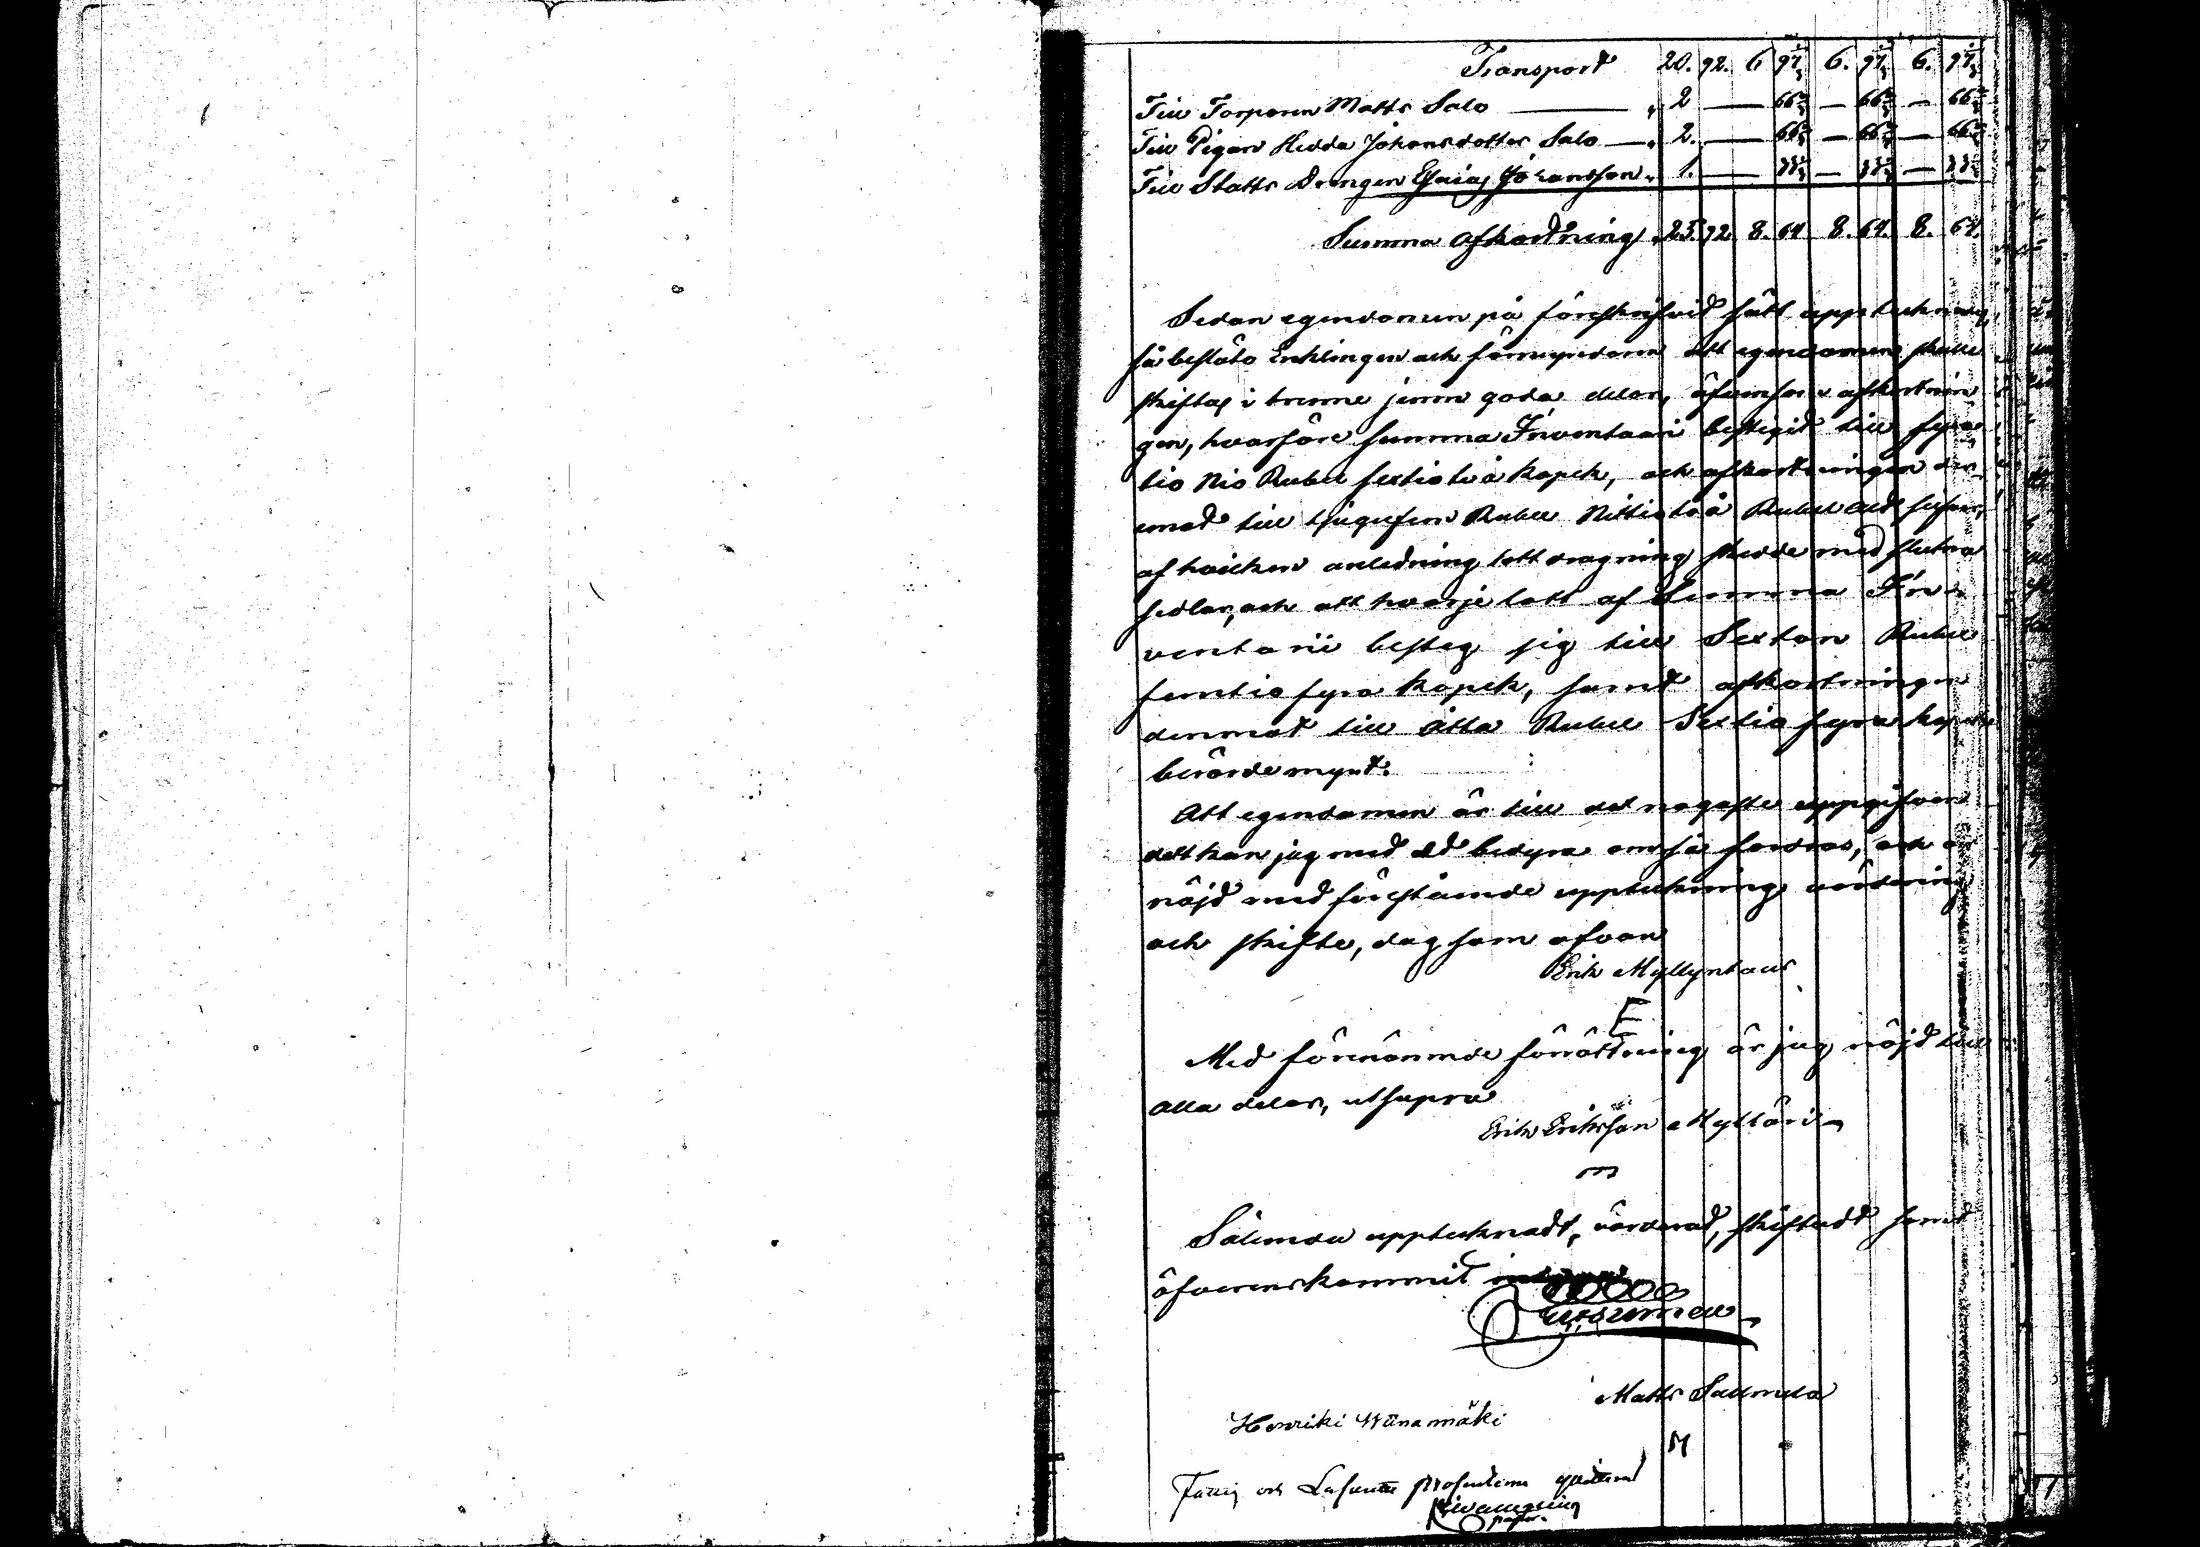 Transport 20. 92. 6 97⅓ 6. 97⅓ 6. 97⅓
Till Torparen Matts Salo — " 2 — 66⅔ — 66⅔ — 66⅔
Till Pigan Hedda Johansdotter Salo — " 2. — 66⅔ — 66⅔ — 66⅔
Till Statts Drengen Esaias Johansson " 1. — 33⅓ — 33⅓ — 33⅓
Summa afkortning " 25. 92 8. 64 8. 64. 8. 64.
Sedan egendomen på föreskrifvit sätt upptecknats,
så beslöto Enklingen och förmyndaren att egendomen skulle
skiftas i trenne jemn goda delar, äfvensom afkortnin
gen, hvarföre Summa Inventarii bestigit till fyra
tio Nio Rubel sextiotvå kopek, och afkortningen der
emot till tjugufem Rubel Nittiotvå Rubel allt silfver,
af hvilken anledning lottdragning skedde med slutna
sedlar, och att hvarje lott af Summa In-
ventarii besteg sig till Sexton Rubel
femtio fyra kopek, samt afkortningen
deremot till Åtta Rubel Sextio fyra kopek
berörde mynt.
Att egendomen är till det nogaste uppgifven
det kan jag med ed bedyra om så fordras, och är
nöjd med förestående uppteckning värdering
och skifte, dag som ofvan
Erik Myllyntaus
E
Med förenämnde förrättning är jag nöjd till
alla delar, utsupra
Erik Eriksson Mylläri
m
Sålunda upptecknadt, värderat, skiftadt samt
öfverenskommit
Matts Sallmela
Henriki Wänamäki
M
Fattig och procenten